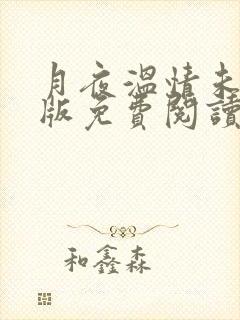 月夜溫情未
版免費閱讀
和鑫森